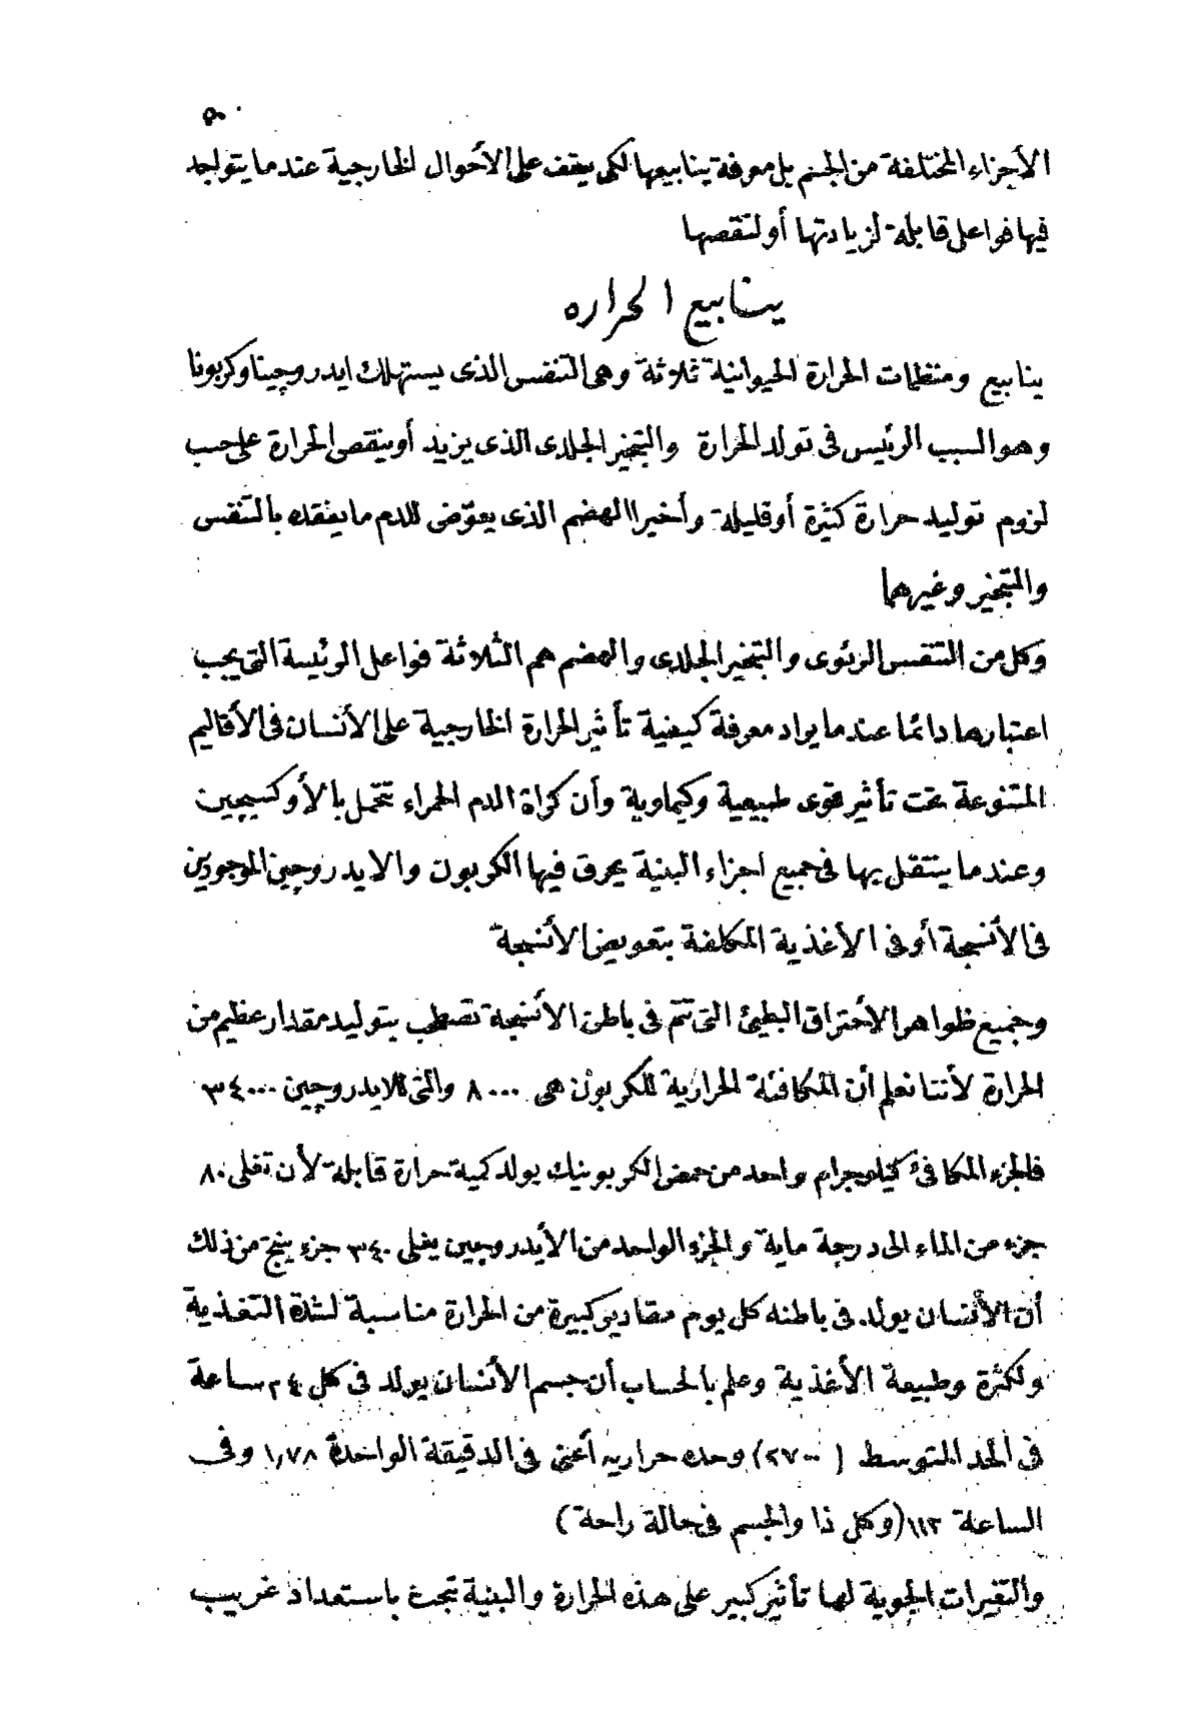 ٥٠
الأجزاء المختلفة من الجسم بل معرفة ينابيعها لكى يقف على الأحوال الخارجية عندما يتواجد
فيها فواعل قابلة لزيادتها أو لنقصها
ينابيع الحراره
ينابيع ومنظمات الحرارة الحيوانية ثلاثة وهى التنفس الذى يستهلك ايدروچينا وكربونا
وهو السبب الرئيس فى تولد الحرارة والتبخير الجلدى الذى يزيد أو ينقص الحرارة على حسب
لزوم توليد حرارة كثيرة أو قليلة وأخيرا الهضم الذى يعوّض للدم ما يفقده بالتنفس
والتبخير وغيرهما
وكل من التنفس الرئوى والتبخير الجلدى والهضم هم الثلاثة فواعل الرئيسة التى يجب
اعتبارها دائما عندما يراد معرفة كيفية تأثير الحرارة الخارجية على الأنسان فى الأقاليم
المتنوعة تحت تأثير قوى طبيعية وكيماوية وأن كراة الدم الحمراء تتحمل بالأوكسيچين
وعندما ينتقل بها فى جميع اجزاء البنية يحرق فيها الكربون والايدروچين الموجودين
فى الأنسجة أو فى الاغذية المكلفة بتعويض الأنسجة
وجميع ظواهر الأحتراق البطيئ التى تتم فى باطن الأنسجة تصطحب بتوليد مقدار عظيم من
الحرارة لأننا نعلم أن المكافئة الحرارية للكربون هى ٨٠٠٠ والتى للايدروچين ٣٤٠٠٠
فالجزء المكافئ كيلوجرام واحد من حمض الكربونيك يولد كمية حرارة قابلة لأن تغلى ٨٠
جزء من الماء الى درجة ماية والجزء الواحد من الأيدروچين يغلى ٣٤٠ جزء ينتج من ذلك
أن الأنسان يولد فى باطنه كل يوم مقادير كبيرة من الحرارة مناسبة لشدة التغذية
ولكثرة وطبيعة الأغذية وعلم بالحساب أن جسم الأنسان يولد فى كل ٢٤ ساعة
فى الحد المتوسط (٢٧٠٠) وحده حراريه أعنى فى الدقيقة الواحدة ١,٧٨ وفى
الساعة ١١٢ (وكل ذا والجسم فى حالة راحة)
والتغيرات الجوية لها تأثير كبير على هذه الحرارة والبنية تبحث باستعداد غريب